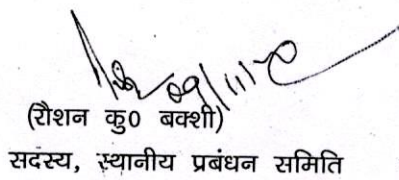 (रौशन कु0 बक्शी)
सदस्य, स्थानीय प्रबंधन समिति